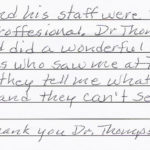 ed his staff were
proffesional. Dr Thom
d did a wonderful
s who saw me at
they tell me what
and they can't se
hank you Dr. Thomps